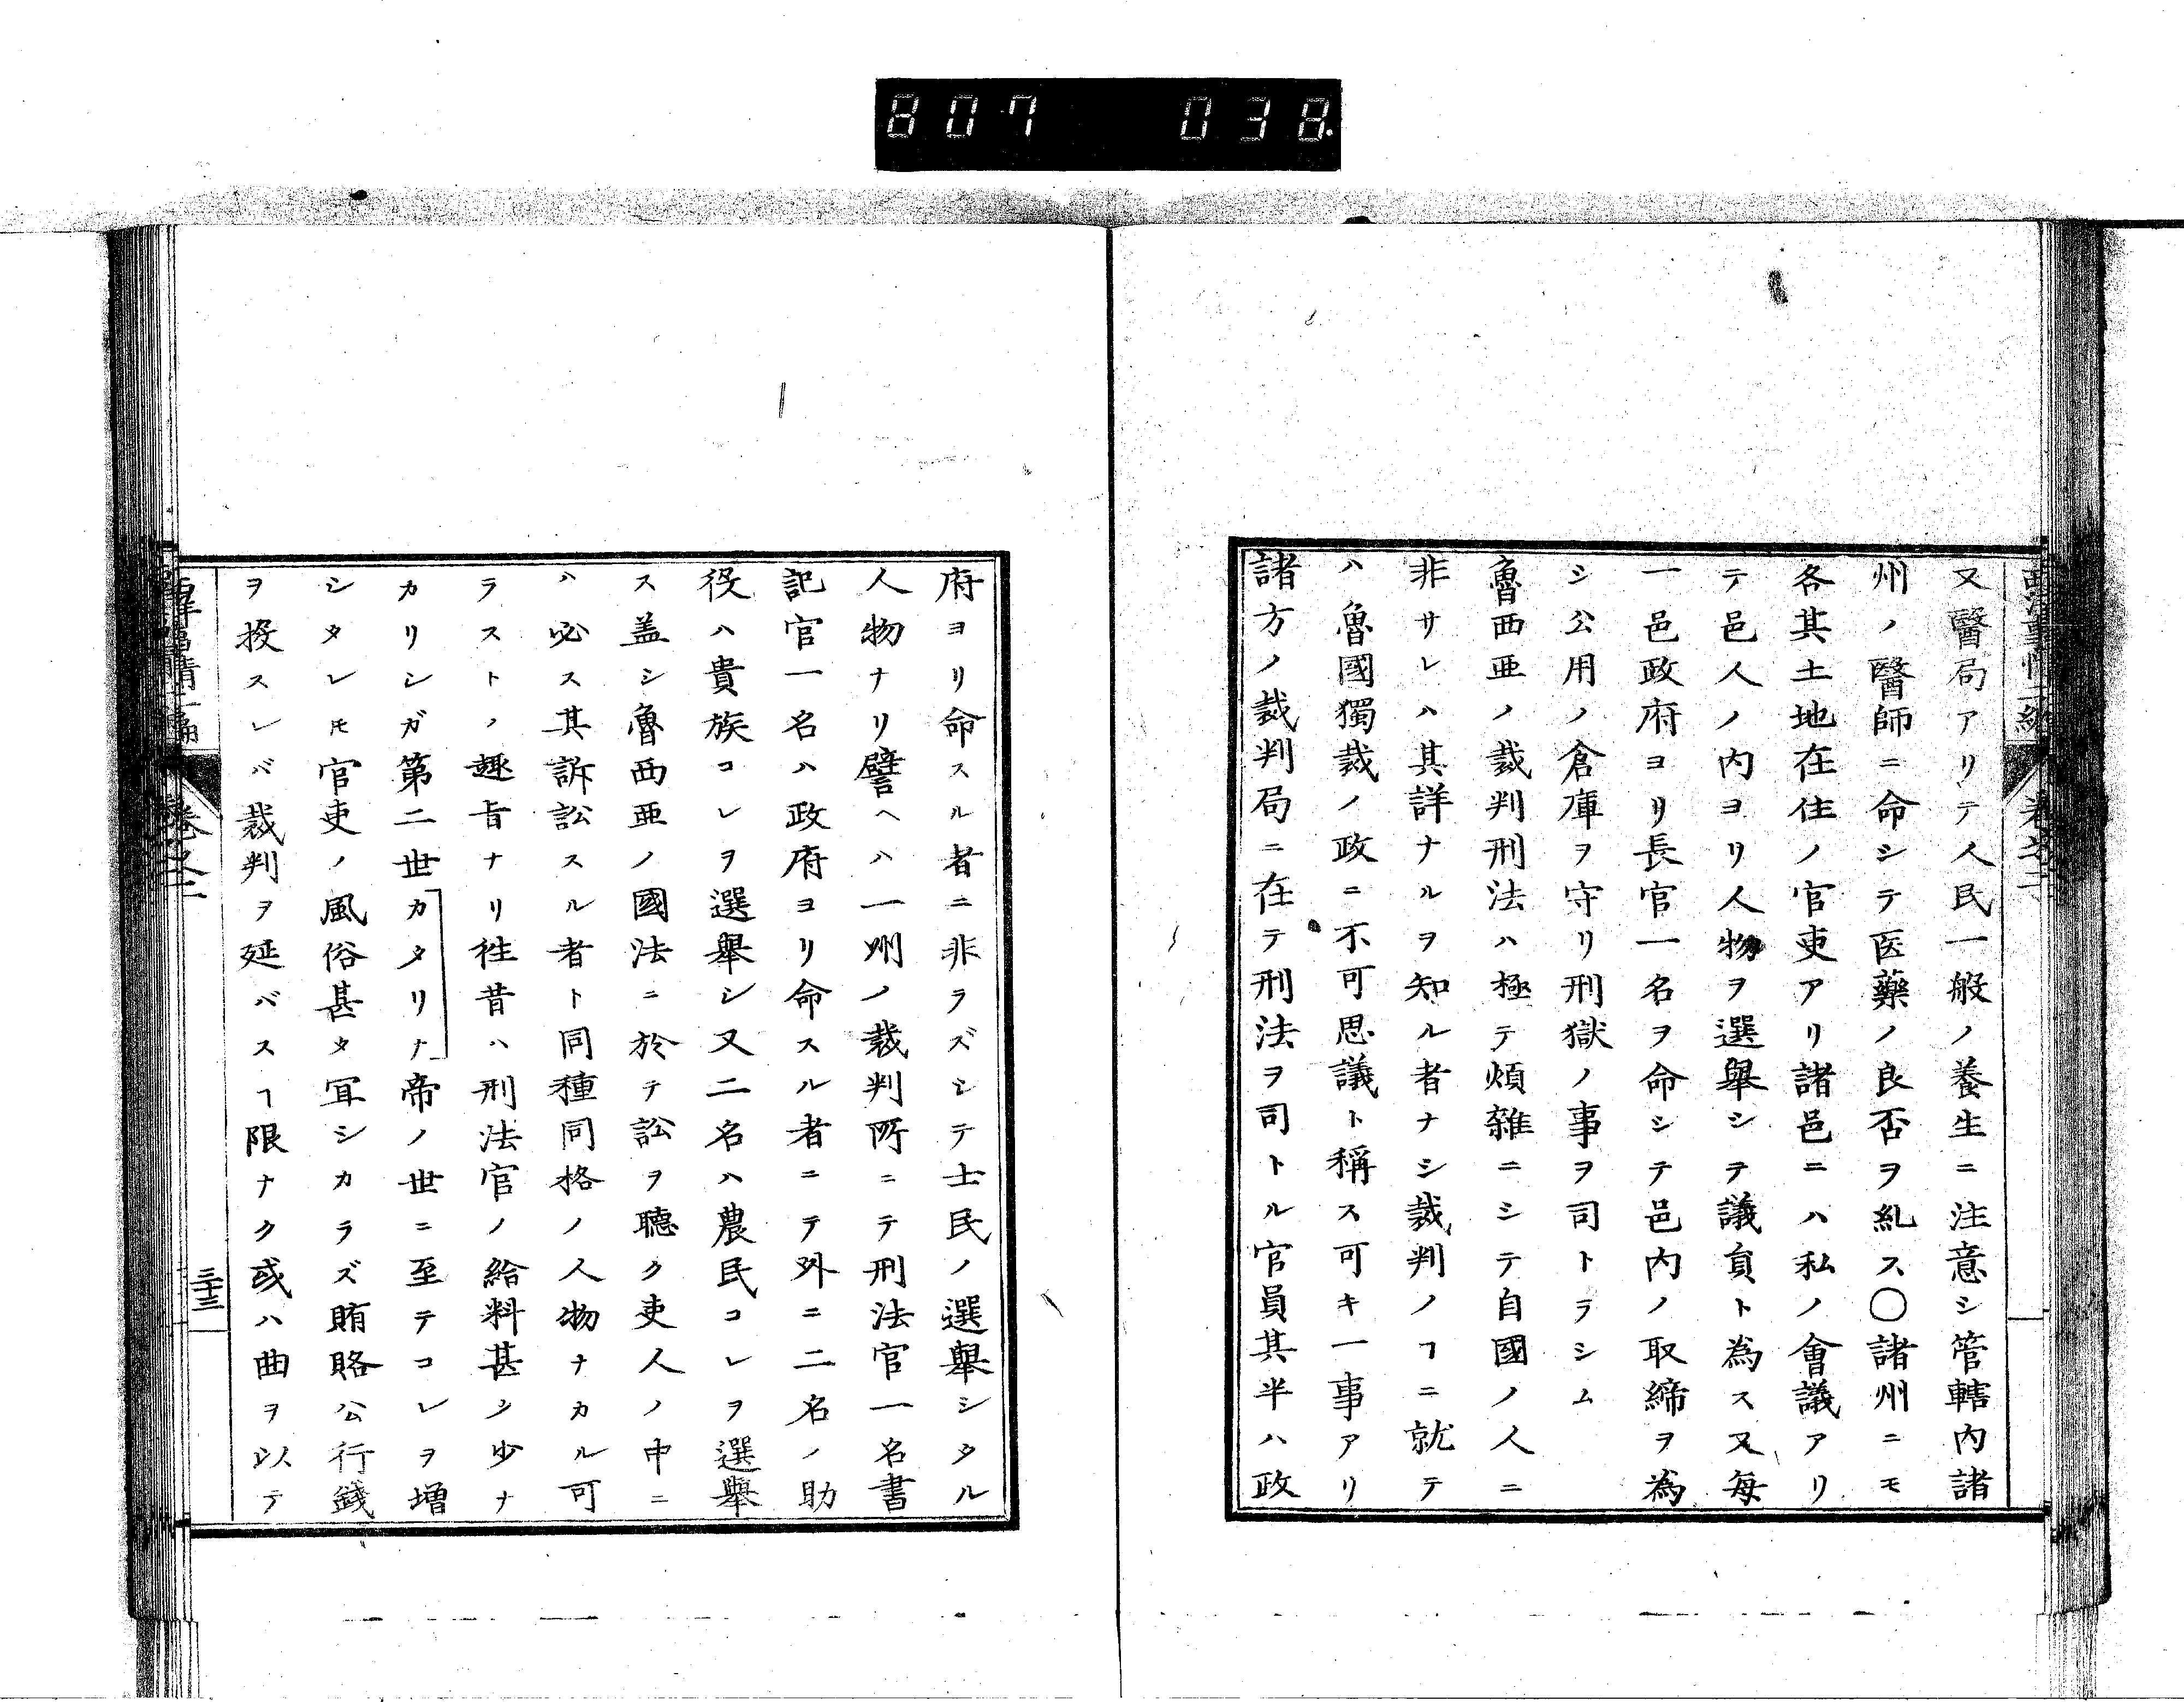 807 038.
又醫局アリテ人民一般ノ養生ニ注意シ管轄内諸
州ノ醫師ニ命シテ医藥ノ良否ヲ糺ス〇諸州ニモ
各其土地在住ノ官吏アリ諸邑ニハ私ノ會議アリ
テ邑人ノ内ヨリ人物ヲ選舉シテ議負ト為ス又毎
一邑政府ヨリ長官一名ヲ命シテ邑内ノ取締ヲ為
シ公用ノ倉庫ヲ守リ刑獄ノ事ヲ司トラシム
魯西亜ノ裁判刑法ハ極テ煩雜ニシテ自國ノ人ニ
非サレハ其詳ナルヲ知ル者ナシ裁判ノヿニ就テ
ハ魯國獨裁ノ政ニ不可思議ト稱ス可キ一事アリ
諸方ノ裁判局ニ在テ刑法ヲ司トル官員其半ハ政
府ヨリ命スル者ニ非ラズシテ士民ノ選舉シタル
人物ナリ譬ヘハ一州ノ裁判所ニテ刑法官一名書
記官一名ハ政府ヨリ命スル者ニテ外ニ二名ノ助
役ハ貴族コレヲ選舉シ又二名ハ農民コレヲ選舉
ス盖シ魯西亜ノ國法ニ於テ訟ヲ聴ク吏人ノ中ニ
ハ必ス其訴訟スル者ト同種同格ノ人物ナカル可
ラストノ趣旨ナリ徃昔ハ刑法官ノ給料甚シ少ナ
カリシガ第二世カタリナ帝ノ世ニ至テコレヲ増
シタレ𪜈官吏ノ風俗甚タ冝シカラズ賄賂公行錢
ヲ投スレバ裁判ヲ延バスヿ限ナク或ハ曲ヲ以テ
卷之二
三十三